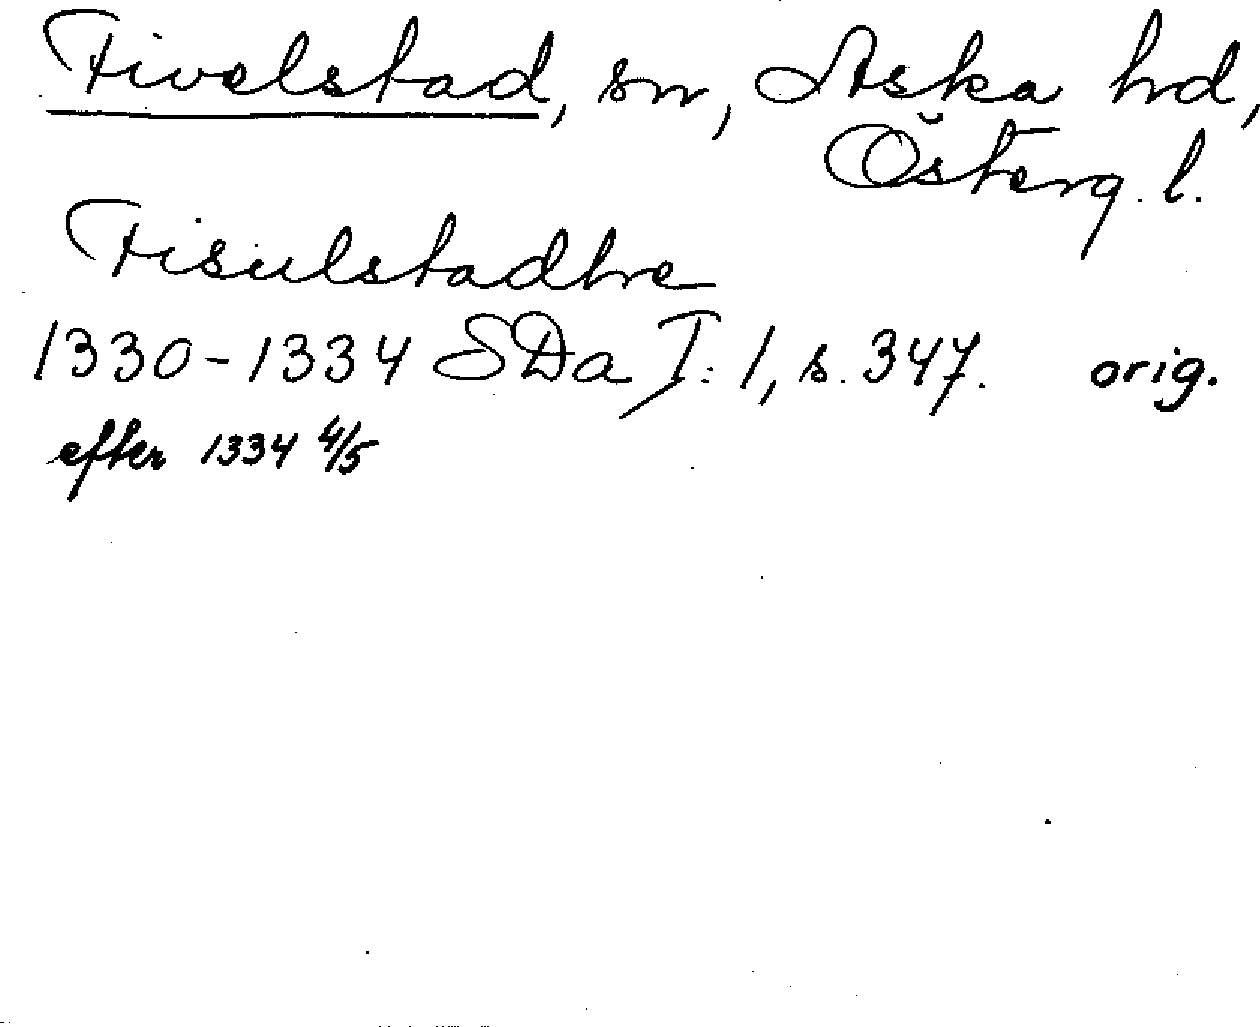 Fivelstad, sn, Aska hd,
Österg. l.
Fisulstadhe
1330-1334 SDa I:1, s. 347. orig.
efter 1334 4/5